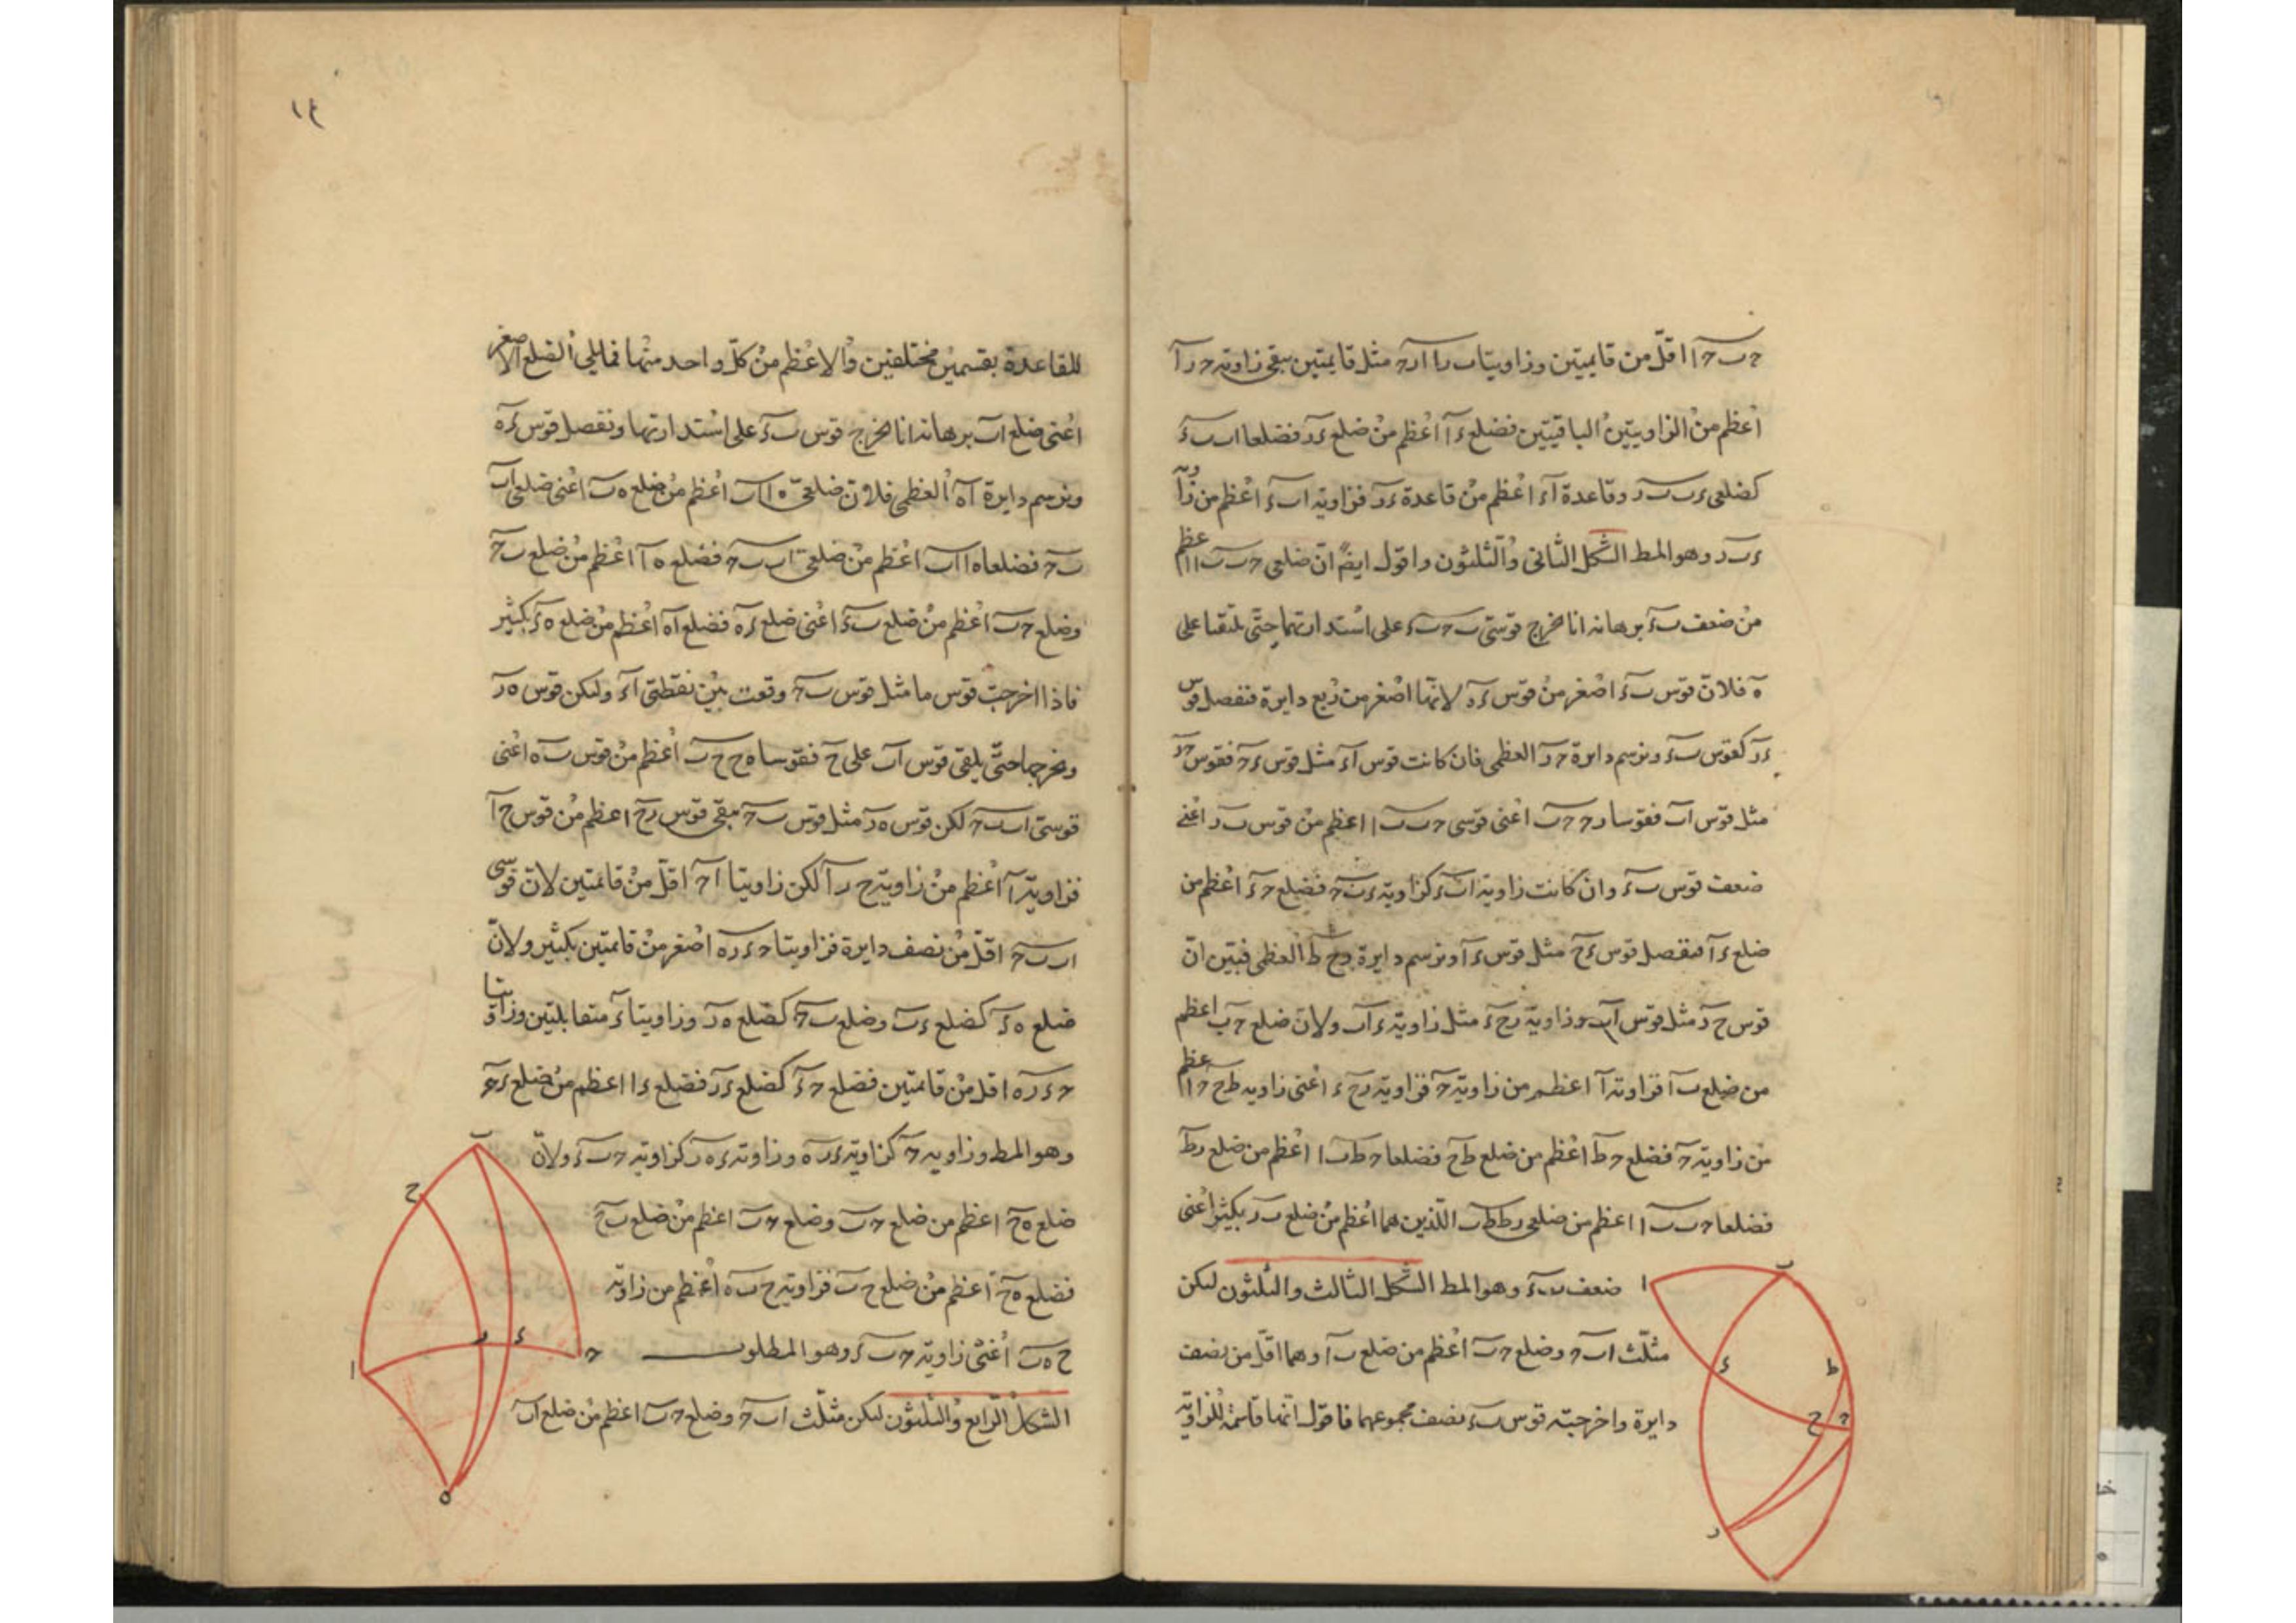 حـ ب حـ ا اقلّ من قايمتين وزاويتا ب را ار حـ مثل قايمتين يبقى زاوية حـ ر ا
اعظم من الزاويتين الباقيتين فضلع ءا اعظم من ضلع ءر فضلعا اب بء
كضلعى ءب بر وقاعدة اء اعظم من قاعدة ءر فزاوية اب ء اعظم من زاوية
ءبر وهو المط الشكل الثانى والثلثون واقول ايضً انّ ضلعى حـب با اعظم
من ضعف بء برهانه انا نخرج قوسى بحـ بء على استدارتهما حتّى يلتقيا على
ه فلانّ قوس بء اصغر من قوس ءه لانّها اصغر من ربع دايرة فنفصل قوس
ءر كقوس بء ونرسم دايرة حـر العظمى فان كانت قوس اء مثل قوس ءحـ فقوس حـر
مثل قوس اب فقوسا رحـ حـب اعنى قوسى حـب با اعظم من قوس بر اعنى
ضعف قوس بء وان كانت زاوية ابء كزاوية ءبحـ فضلع حـء اعظم من
ضلع ءا فنفصل قوس ءح مثل قوس ءا ونرسم دايرة رح ط العظمى فبيّن انّ
قوس ح ر مثل قوس اب وزاوية رحء مثل زاوية ءاب ولانّ ضلع حـب اعظم
من ضلع با فزاوية ا اعظم من زاوية حـ فزاوية رح ء اعنى زاوية طح حـ اعظم
من زاوية حـ فضلع حـط اعظم من ضلع طح فضلعا حـط با اعظم من ضلع رط
فضلعا حـب با اعظم من ضلعى رط طب اللذين هما اعظم من ضلع بر بكثير اعنى
ضعف بء وهو المط الشكل الثالث والثلثون ليكن
مثلّث ابحـ وضلع حـب اعظم من ضلع با وهما اقلّ من نصف
دايرة واخرجته قوس بء نصف مجموعهما فاقول انّها قاسمة للزاوية
١٤
للقاعدة بقسمين مختلفين والاعظم من كلّ واحد منها فما يلى الضلع الاصغر
اعنى ضلع اب برهانه انا نخرج قوس بء على استدارتها ونفصل قوس ءه
ونرسم دايرة اه العظمى فلانّ ضلعى ه ا اب اعظم من ضلع ه ب اعنى ضلعى اب
بحـ فضلعا ه ا اب اعظم من ضلعى اب بحـ فضلع ه ا اعظم من ضلع بحـ
وضلع حـب اعظم من ضلع بء اعنى ضلع ءه فضلع اه اعظم من ضلع ه ء بكثير
فاذا اخرجت قوس ما مثل قوس بحـ وقعت بين نقطتى اء وليكن قوس ه ر
ونخرجها حتّى يلقى قوس اب على ح فقوسا ه ح ح ب اعظم من قوس ب ه اعنى
قوسى اب بحـ لكن قوس ه ر مثل قوس بحـ يبقى قوس رح اعظم من قوس ح ا
فزاوية ا اعظم من زاوية ح ر ا لكن زاويتا ا حـ اقلّ من قائمتين لانّ قوسى
اب بحـ اقلّ من نصف دايرة فزاويتا حـ ءره اصغر من قائمتين بكثير ولانّ
ضلع ه ء كضلع ءب وضلع بحـ كضلع ه ر وزاويتا ء متقابلتين وزاويتا
حـ ءره اقل من قائمتين فضلع حـء كضلع ءر فضلع ءا اعظم من ضلع ءحـ
وهو المط وزاوية حـ كزاوية ءره وزاوية ءه ر كزاوية حـب ء ولانّ
ضلع ه ح اعظم من ضلع حـب وضلع حـب اعظم من ضلع ب ح
فضلع ه ح اعظم من ضلع ح ب فزاوية ح ب ه اعظم من زاوية
ح ه ب اعنى زاوية حـب ء وهو المطلوب
الشكل الرابع والثلثون ليكن مثلّث ابحـ وضلع حـب اعظم من ضلع اب